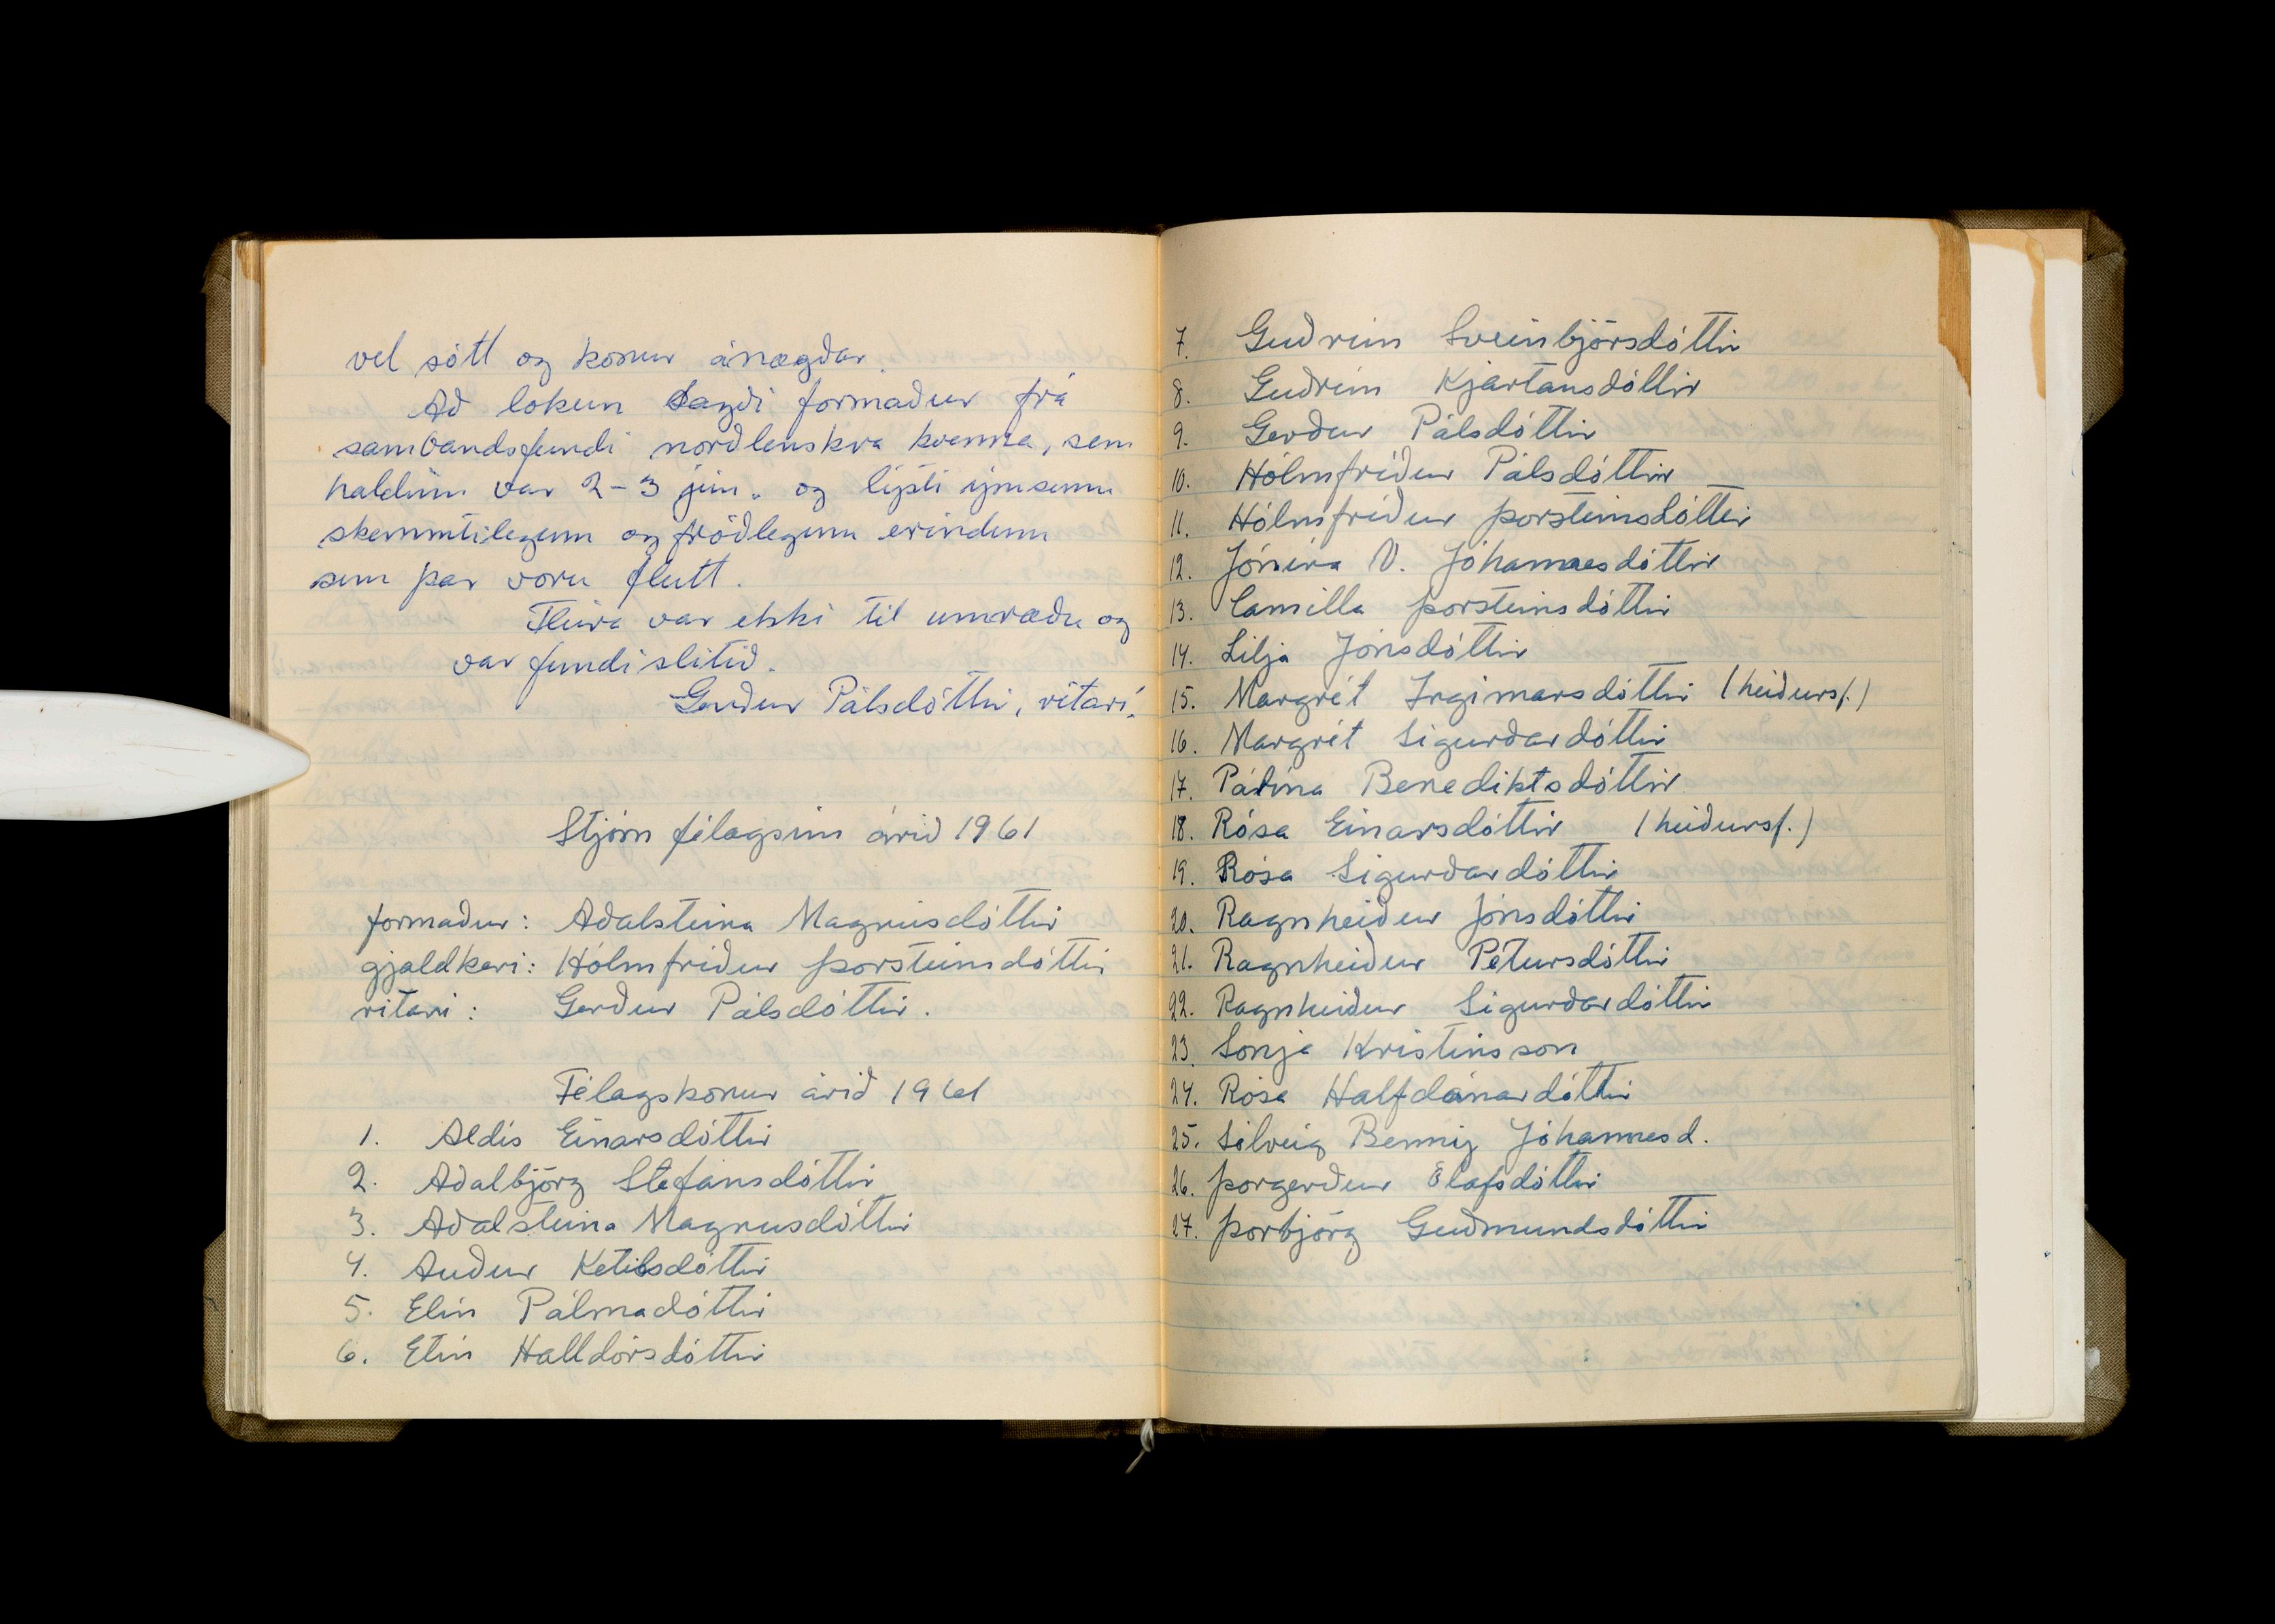 vel sótt og konur ánægðar.
Að lokun sagði formaður frá
sambandsfundi norðlenskra kvenna, sem
haldinn var 2-3 jún. og lýsti ýmsum
skemmtilegum og fróðlegum erindum
sem þar voru flutt.
Fleira var ekki til umræðu og
var fundi slitið.
Gerður Pálsdóttir, ritari.
Stjórn félagsins árið 1961
formaður: Aðalsteina Magnúsdóttir
gjaldkeri: Hólmfríður Þorsteinsdóttir
ritari: Gerður Pálsdóttir.
Félagskonur árið 1961
1. Aldís Einarsdóttir
2. Aðalbjörg Stefánsdóttir
3. Aðalsteina Magnusdóttir
4. Auður Ketilsdóttir
5. Elín Pálmadóttir
6. Elín Halldórsdóttir
7. Guðrún Sveinbjörsdóttir
8. Guðrún Kjartansdóttir
9. Gerður Pálsdóttir
10. Hólmfríður Pálsdóttir
11. Hólmfríður Þorsteinsdóttir
12. Jónína V. Jóhannesdóttir
13. Camilla Þorsteinsdóttir
14. Lilja Jónsdóttir
15. Margrét Ingimarsdóttir (heiðursf.)
16. Margrét Sigurðardóttir
17. Pálína Benediktsdóttir
18. Rósa Einarsdóttir (heiðursf.)
19. Rósa Sigurðardóttir
20. Ragnheiður Jónsdóttir
21. Ragnheiður Pétursdóttir
22. Ragnheiður Sigurðardóttir
23. Sonja Kristinsson
24. Rósa Halfdánardóttir
25. Sólveig Benný Jóhannesd.
26. Þorgerður Ólafsdóttir
27. Þorbjörg Guðmundsdóttir